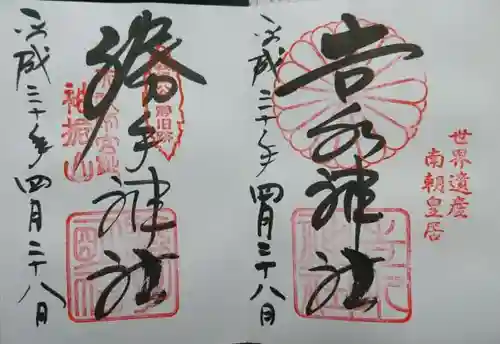 世界遺産
南朝皇居
吉水神社
平成三十年四月二十八日
勝手神社
神振山
平成三十年四月二十八日